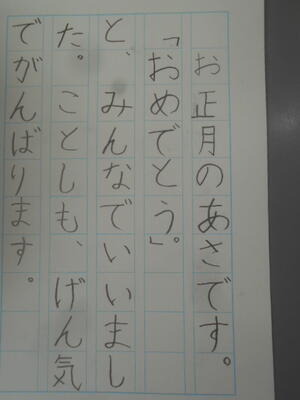 お正月のあさです。
「おめでとう」。
と、みんなでいいまし
た。ことしも、げん気
でがんばります。